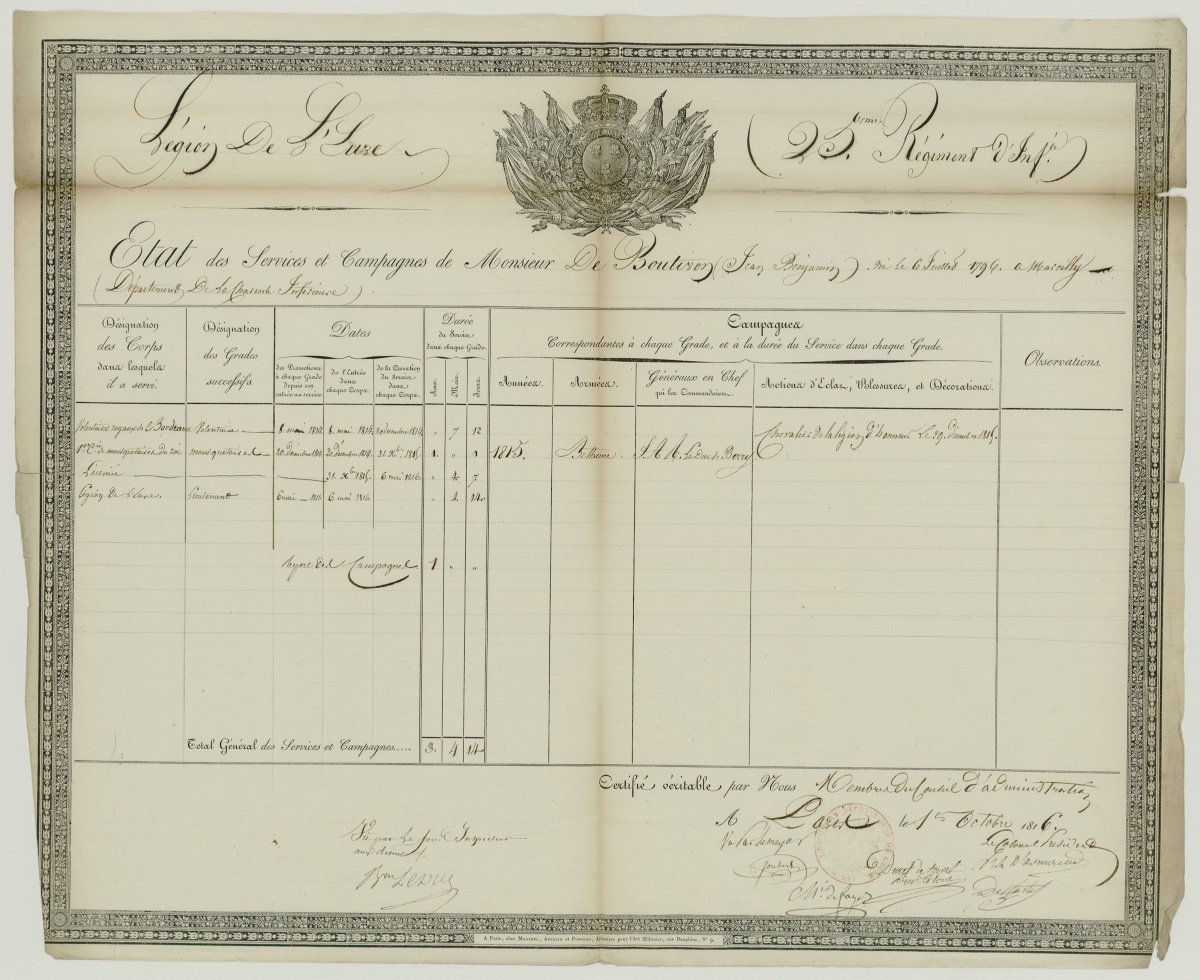 Légion De L'Eure
25.eme Régiment d'Inf.ie
Etat des Services et Campagnes de Monsieur De Boutiron (Jean Benjamin) né le 6 Juillet 1796. a Marcilly
(Département De La Charente Inférieure)
Désignation des Corps dans lesquels il a servi.
Désignation des Grades successifs
Dates
des Promotions à chaque Grade depuis son entrée au service
de l'Entrée dans chaque Corps.
de la Cessation du Service dans chaque Corps.
Durée du Service dans chaque Grade.
Ans.
Mois.
Jours.
Campagnes
Correspondantes à chaque Grade, et à la durée du Service dans chaque Grade.
Années.
Armées.
Généraux en Chef qui les Commandaient.
Actions d'Eclat, Blessures, et Décorations.
Observations.
Volontaires royaux de Bordeaux Volontaire 8 mai 1814. 8 mai 1814. 20 décembre 1814 " 7 12
1ere Cie de mousquetaires du roi mousquetaire 20 décembre 1814 20 décembre 1814. 31 Xbre 1815. 1 " 1 1815. Bethune. S.A.R. Le Duc de Berry Chevalier de la légion d'honneur Le 29 décembre 1815.
Licencié 31 Xbre 1815. 6 mai 1816. " 4 7
Légion de l'Eure. Lieutenant 6 mai 1816 6 mai 1816. " 4 14
Campagnes 1 " "
Total Général des Services et Campagnes..... 3. 4 14
Certifié véritable par Nous Membres Du Conseil d'administration
A Paris le 1er Octobre 1816.
Vu par le Sous Inspecteur
aux revues
Vu par le major
Le Colonel Président
Joubert
A Paris, chez Magimel, Anselin et Pochard, Libraires pour l'Art Militaire, rue Dauphine, No 9.